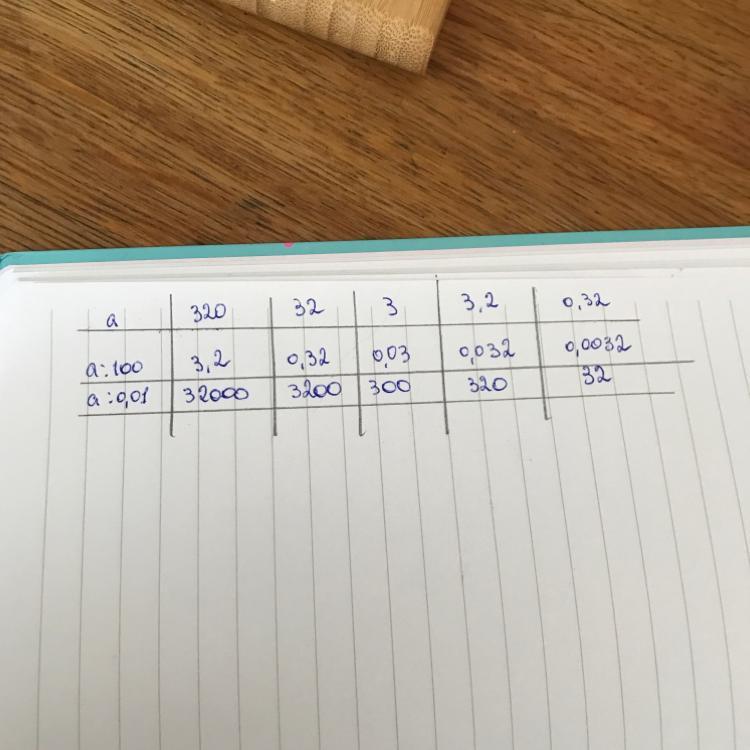 a 320 32 3 3,2 0,32
a:100 3,2 0,32 0,03 0,032 0,0032
a:0,01 32000 3200 300 320 32